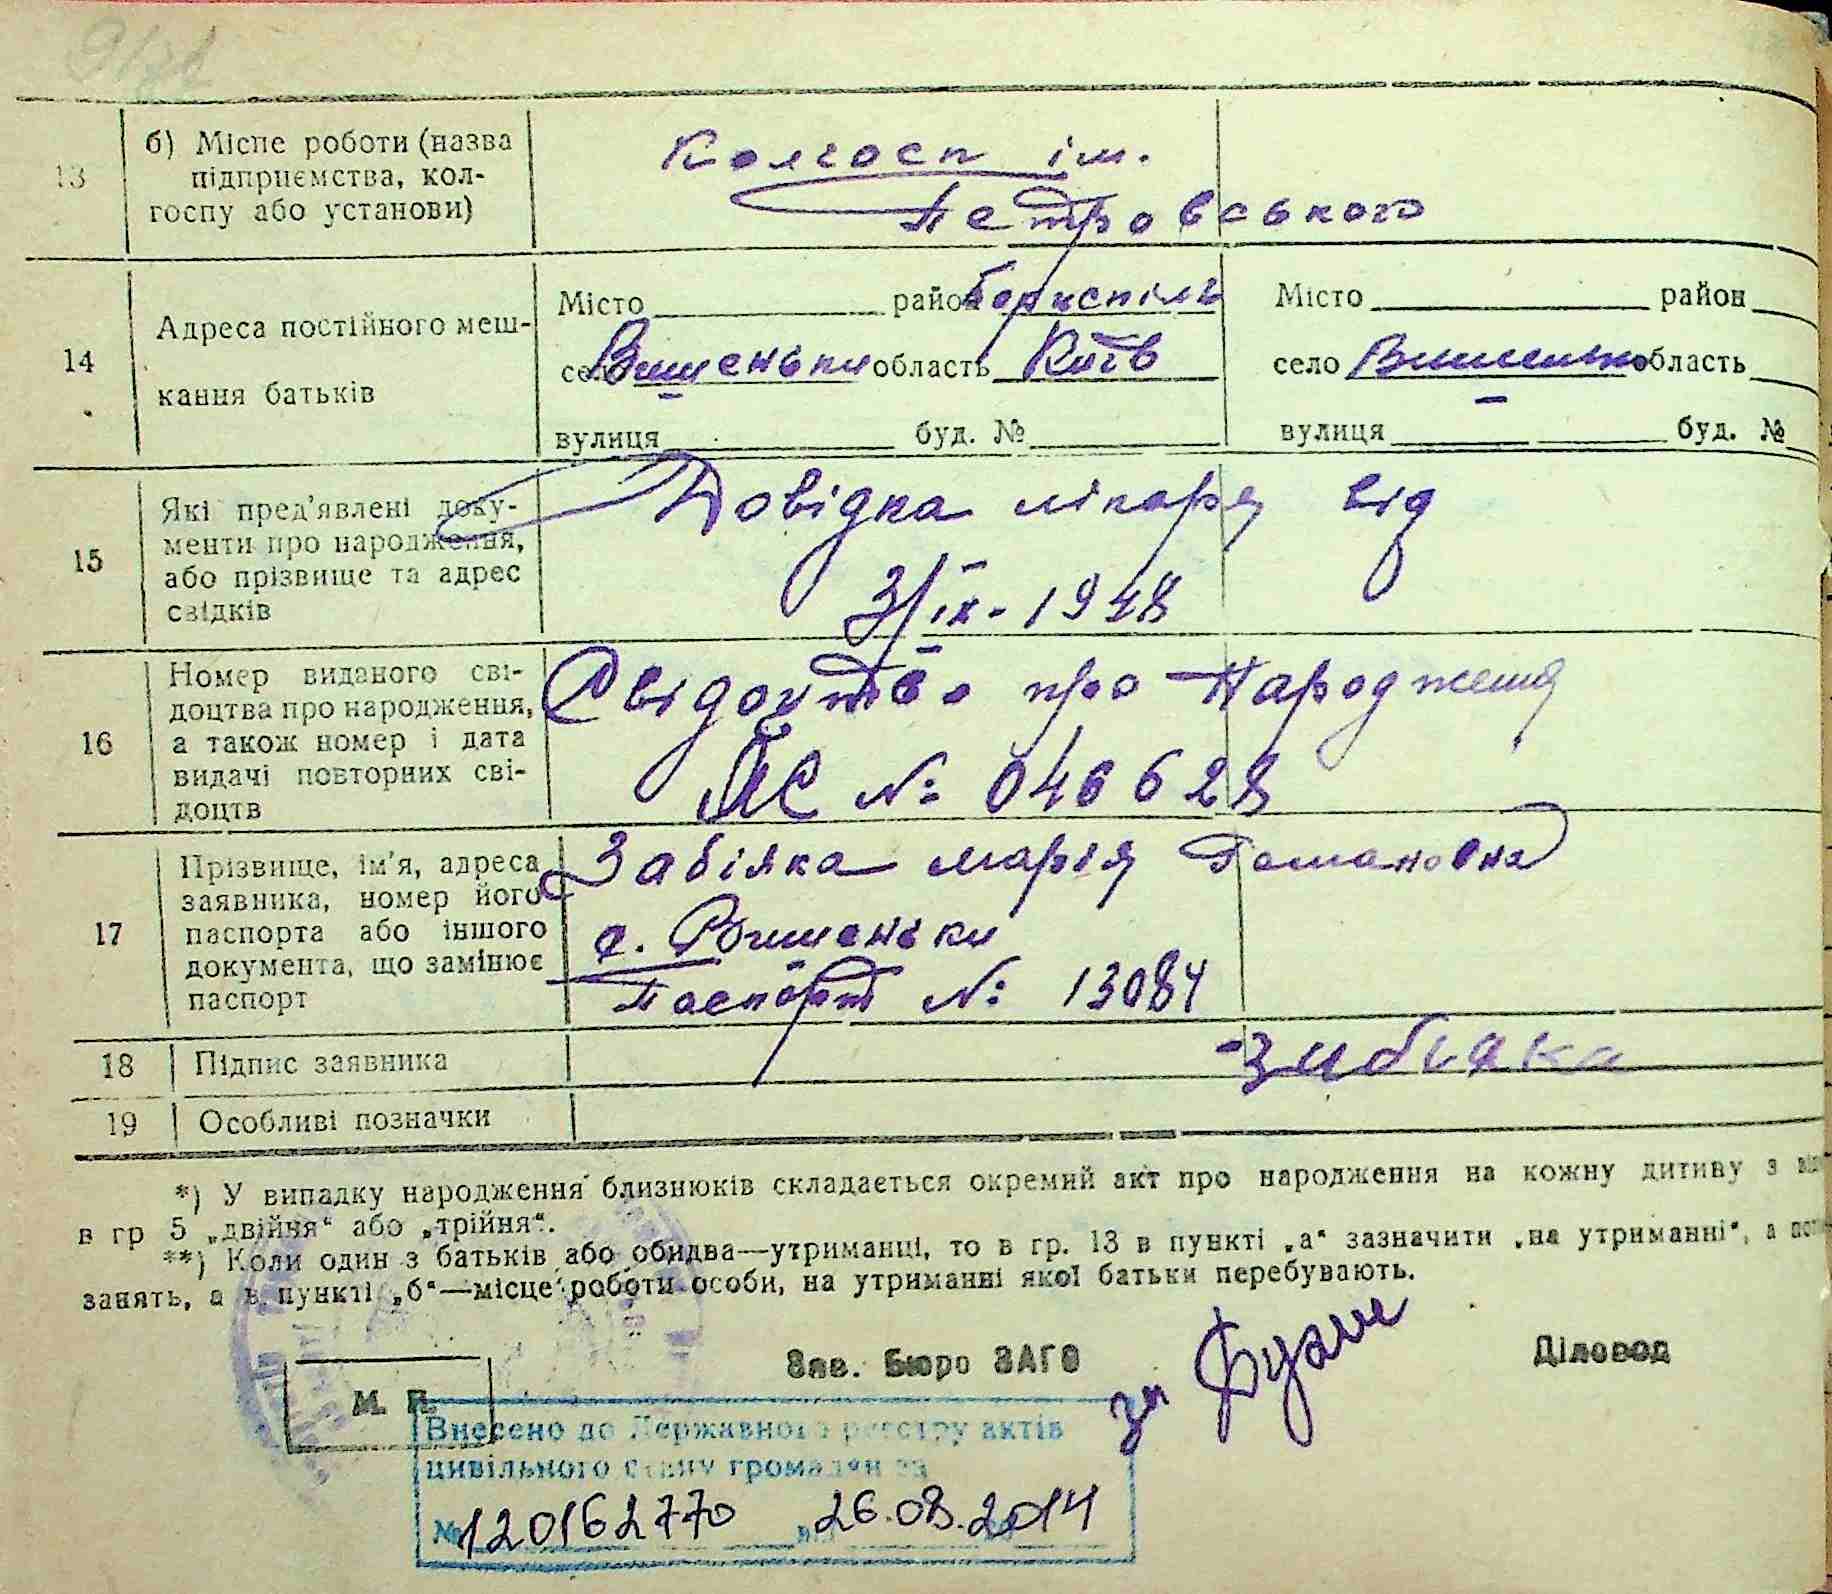 13
б) Місце роботи (назва
підприємства, кол-
госпу або установи)
Колгосп ім.
Петровського
14
Адреса постійного меш-
кання батьків
Місто район Бориспіль
село Вишеньки область Київ
вулиця буд. №
Місто район
село Вишеньки область
вулиця буд. №
15
Які пред'явлені доку-
менти про народження,
або прізвище та адрес
свідків
Довідка лікаря від
3/ІХ-1948
16
Номер виданого сві-
доцтва про народження,
а також номер і дата
видачі повторних сві-
доцтв
Свідоцтво про Народження
№ 046628
17
Прізвище, ім'я, адреса
заявника, номер його
паспорта або іншого
документа, що замінює
паспорт
Забіяка Марія
с. Вишеньки
Паспорт № 13084
18
Підпис заявника
Забіяка
19
Особливі позначки
*) У випадку народження близнюків складається окремий акт про народження на кожну дитиву з
в гр 5 „двійня“ або „трійня“.
**) Коли один з батьків або обидва—утриманці, то в гр. 13 в пункті „а“ зазначити „на утриманні“, а
занять, а в пункті „б“—місце роботи особи, на утриманні якої батьки перебувають.
Зав. Бюро ЗАГС
за
Діловод
М. П.
Внесено до Державного реєстру актів
цивільного стану громадян за
№ 120162770 26.08.2014